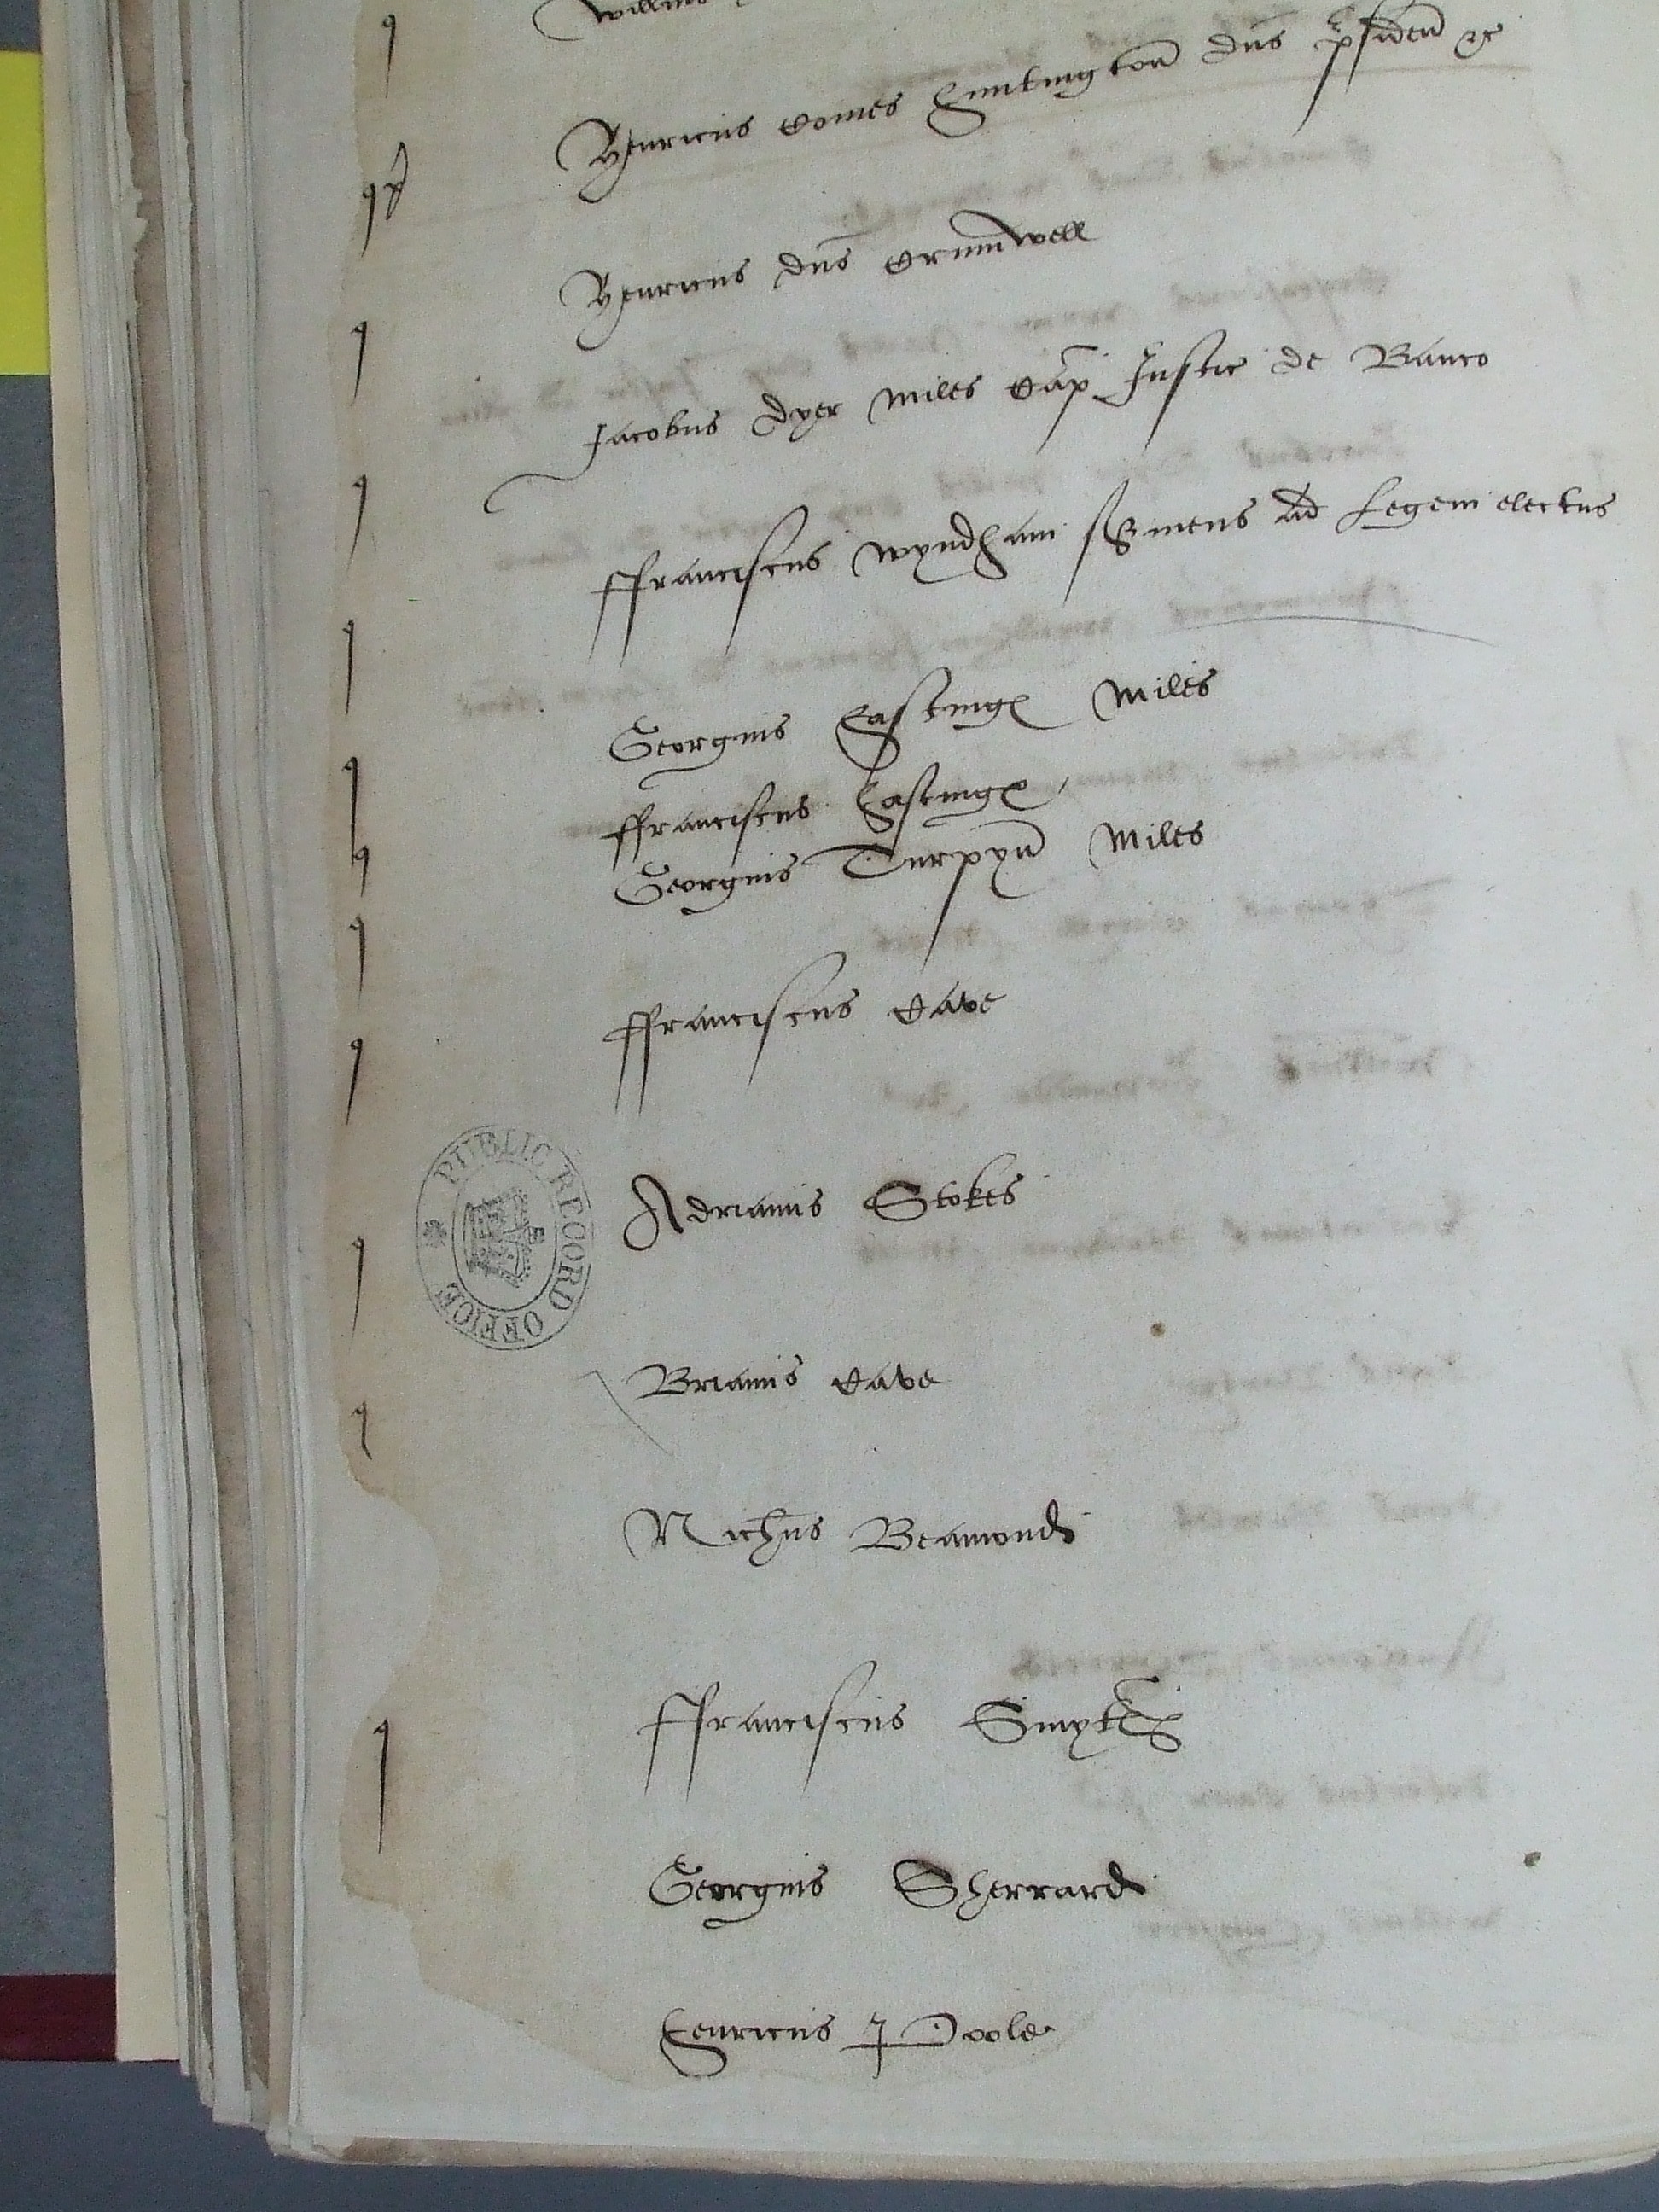 Willms
Henricus Comes Huntingtoñ dñs p̃siden̄ &c
Henricus dñs Crumwell
Jacobus dyer Miles Cap̃ Justic de Banco
ffranciscus Wyndham s̃viens ad Legem electus
Georgius Hasting℮ Miles
ffranciscus Hasting℮
Georgius Turpyñ Miles
ffranciscus Cave
PUBLIC RECORD OFFICE
Adrianus Stokes
Brianus Cave
Nich̃us Beamond
ffranciscus Smyth
Georgius Sherrard
Henricus Poole